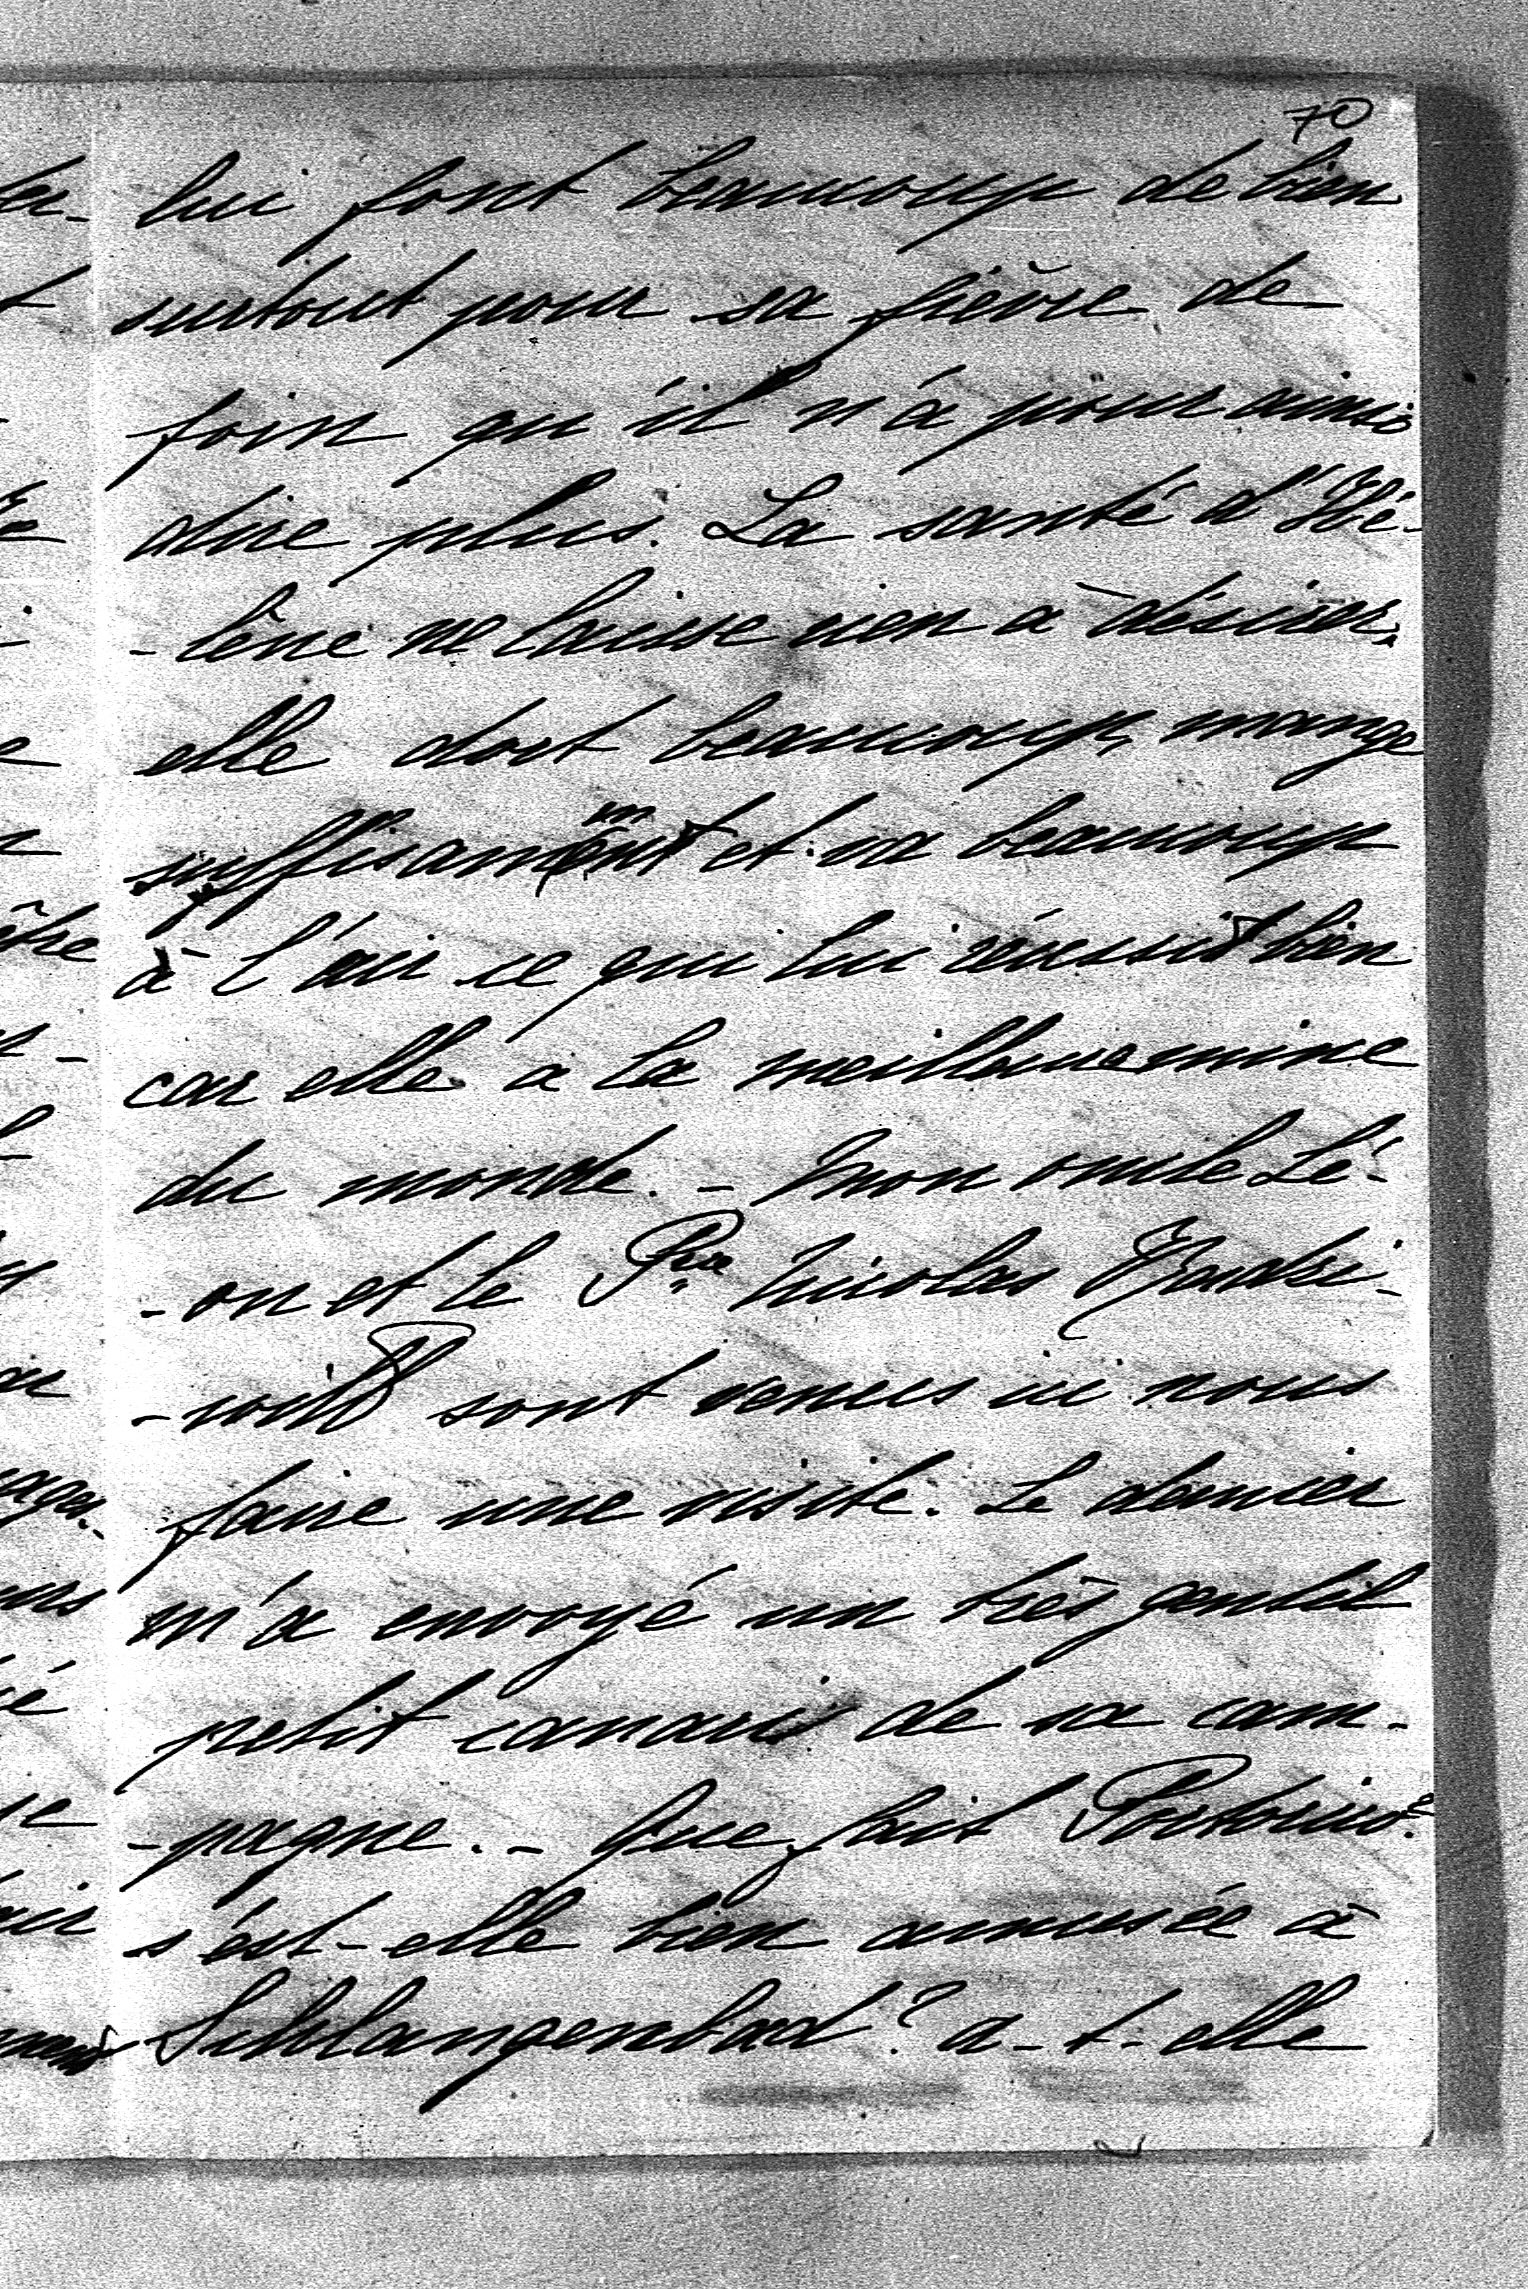 70
lui font beaucoup de bien
surtout pour sa fièvre de
foin qu'il n'a pour ainsi
dire plus. La santé d'Hé-
-lène ne laisse rien à désirer,
elle dort beaucoup, mange
suffisamment et va beaucoup
à l'air ce qui lui réussit bien
car elle a la meilleure mine
du monde. - Mon oncle Lé-
-on et le Pce Nicolas
sont venus ici nous
faire une visite. Le dernier
m'a envoyé un très gentil
petit canari de sa cam-
-pagne. - Que fait
s'est-elle bien amusée à
Schlangenbad? a-t-elle